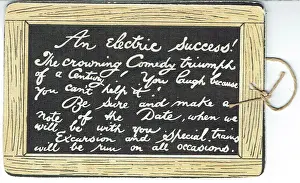 An Electric Success!
The crowning Comedy triumph
of a Century! You laugh because
you can't help it!
Be sure and make a
note of the Date, when we
will be with you
Excursion and special trains
will be run on all occasions.